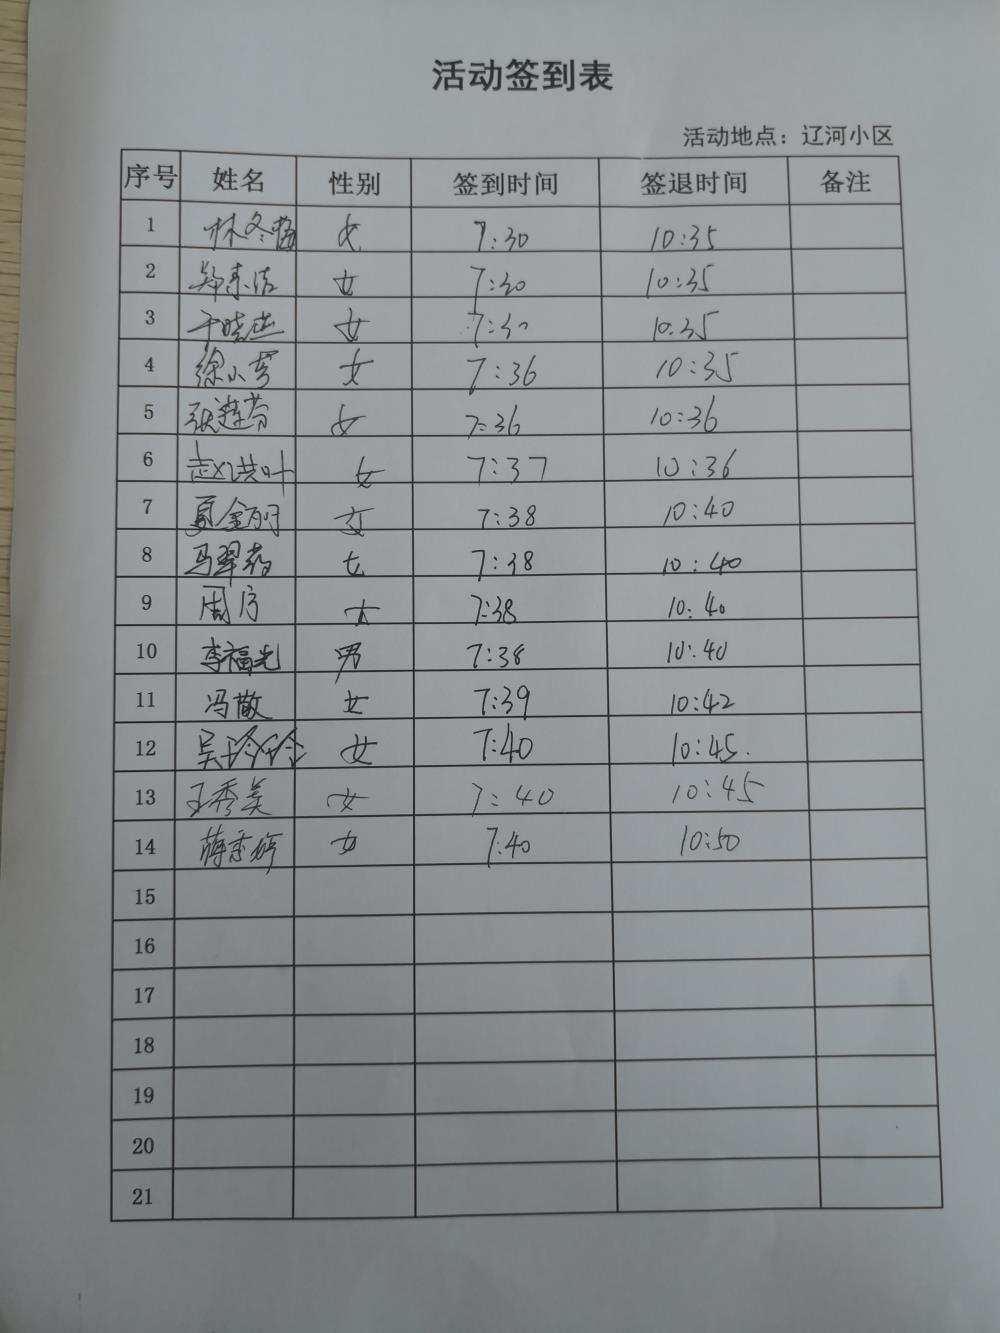 活动签到表
活动地点：辽河小区
序号 姓名 性别 签到时间 签退时间 备注
1 林冬梅 女 7:30 10:35
2 郑素洁 女 7:30 10:35
3 于晓燕 女 7:30 10:35
4 徐小芳 女 7:36 10:35
5 张莲芬 女 7:36 10:36
6 赵洪叶 女 7:37 10:36
7 夏金丽 女 7:38 10:40
8 马翠 女 7:38 10:40
9 周 女 7:38 10:40
10 李福光 男 7:38 10:40
11 冯敬 女 7:39 10:42
12 吴玲玲 女 7:40 10:45.
13 王秀美 女 7:40 10:45
14 蒋 女 7:40 10:50
15
16
17
18
19
20
21